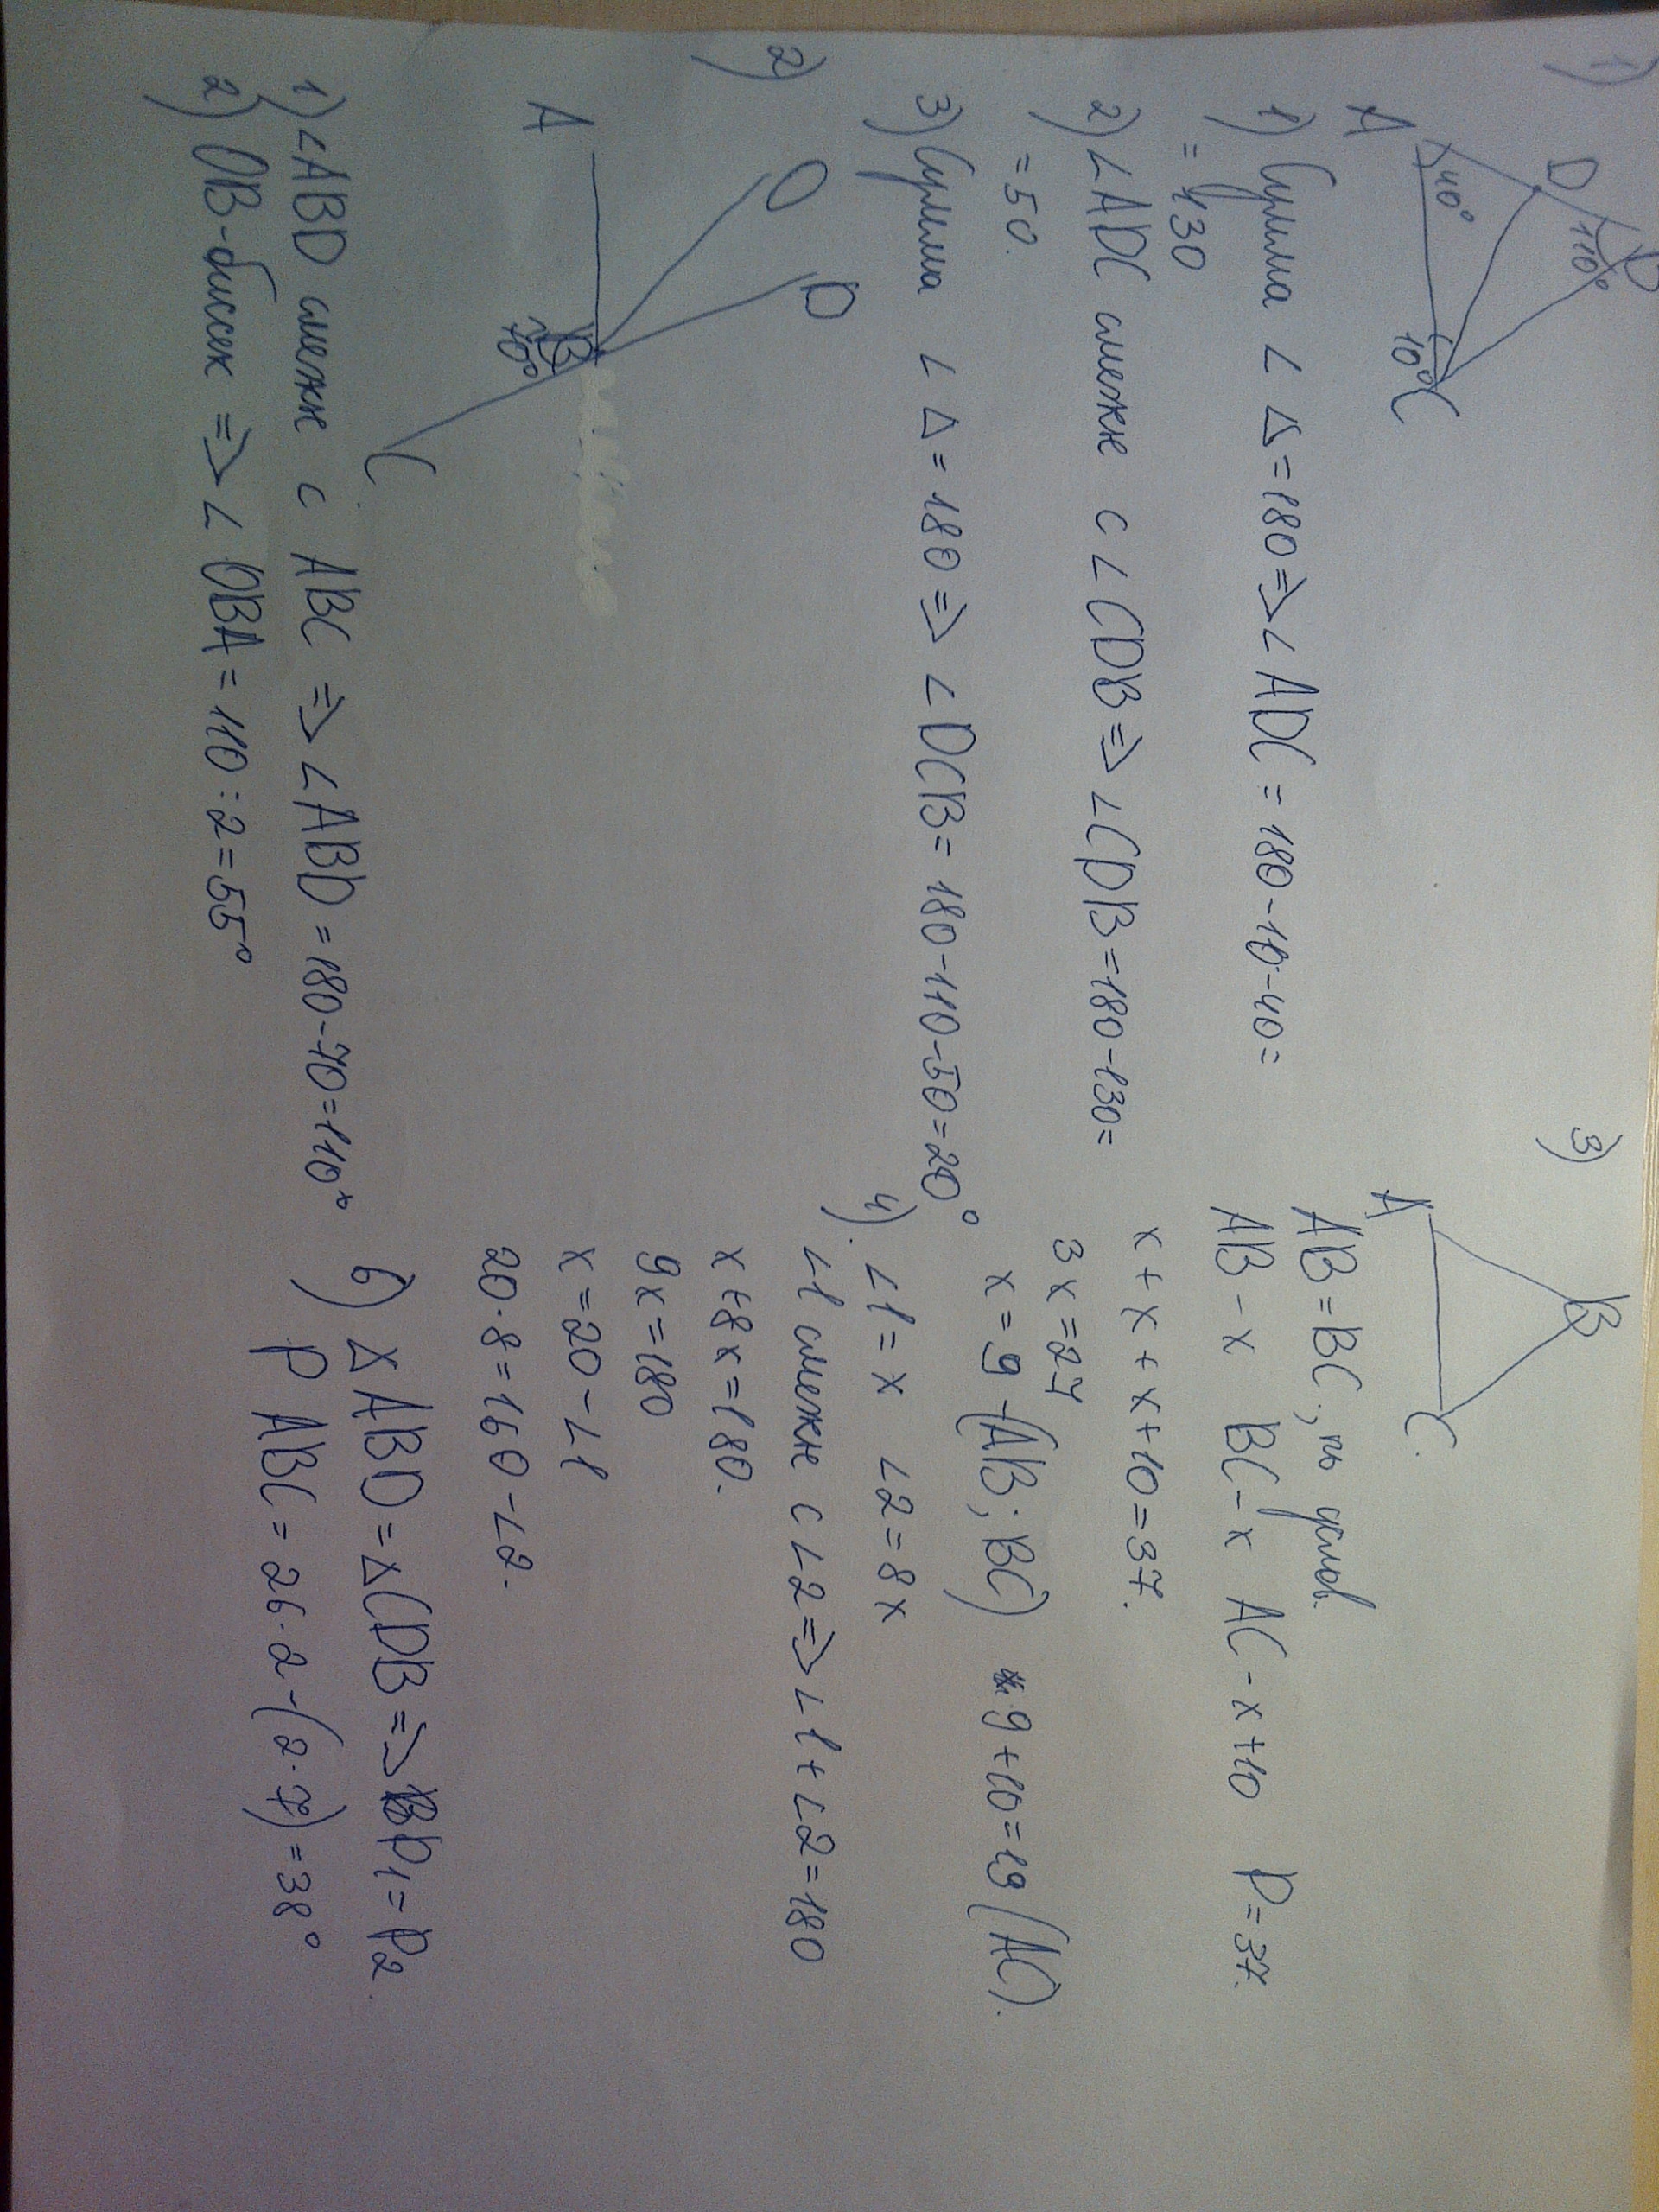 1)
A
D
B
C
40°
110°
10°
1) Сумма ∠ Δ = 180 => ∠ ADC = 180-10-40=
= 130
2) ∠ADC смежн с ∠CDB => ∠CDB = 180-130=
= 50.
3) Сумма ∠ Δ = 180 => ∠DCB = 180-110-50=20°
2)
A
O
D
B
70°
C
1) ∠ABD смежн с ABC => ∠ABD = 180-70=110°
2) OB-биссек => ∠ OBA = 110:2=55°
3)
A
B
C.
AB = BC, по услов.
AB - x BC - x AC - x+10 P=37.
x + x + x+10 = 37.
3x = 27
x = 9 - (AB; BC) 9+10=19 (AC).
4). ∠1 = x ∠2 = 8x
∠1 смежн с ∠2 => ∠1 + ∠2 = 180
x+8x = 180.
9x = 180
x = 20 - ∠1
20·8 = 160 - ∠2.
6) Δ ABD = Δ CDB => P1 = P2.
P ABC = 26·2-(2·7) = 38°